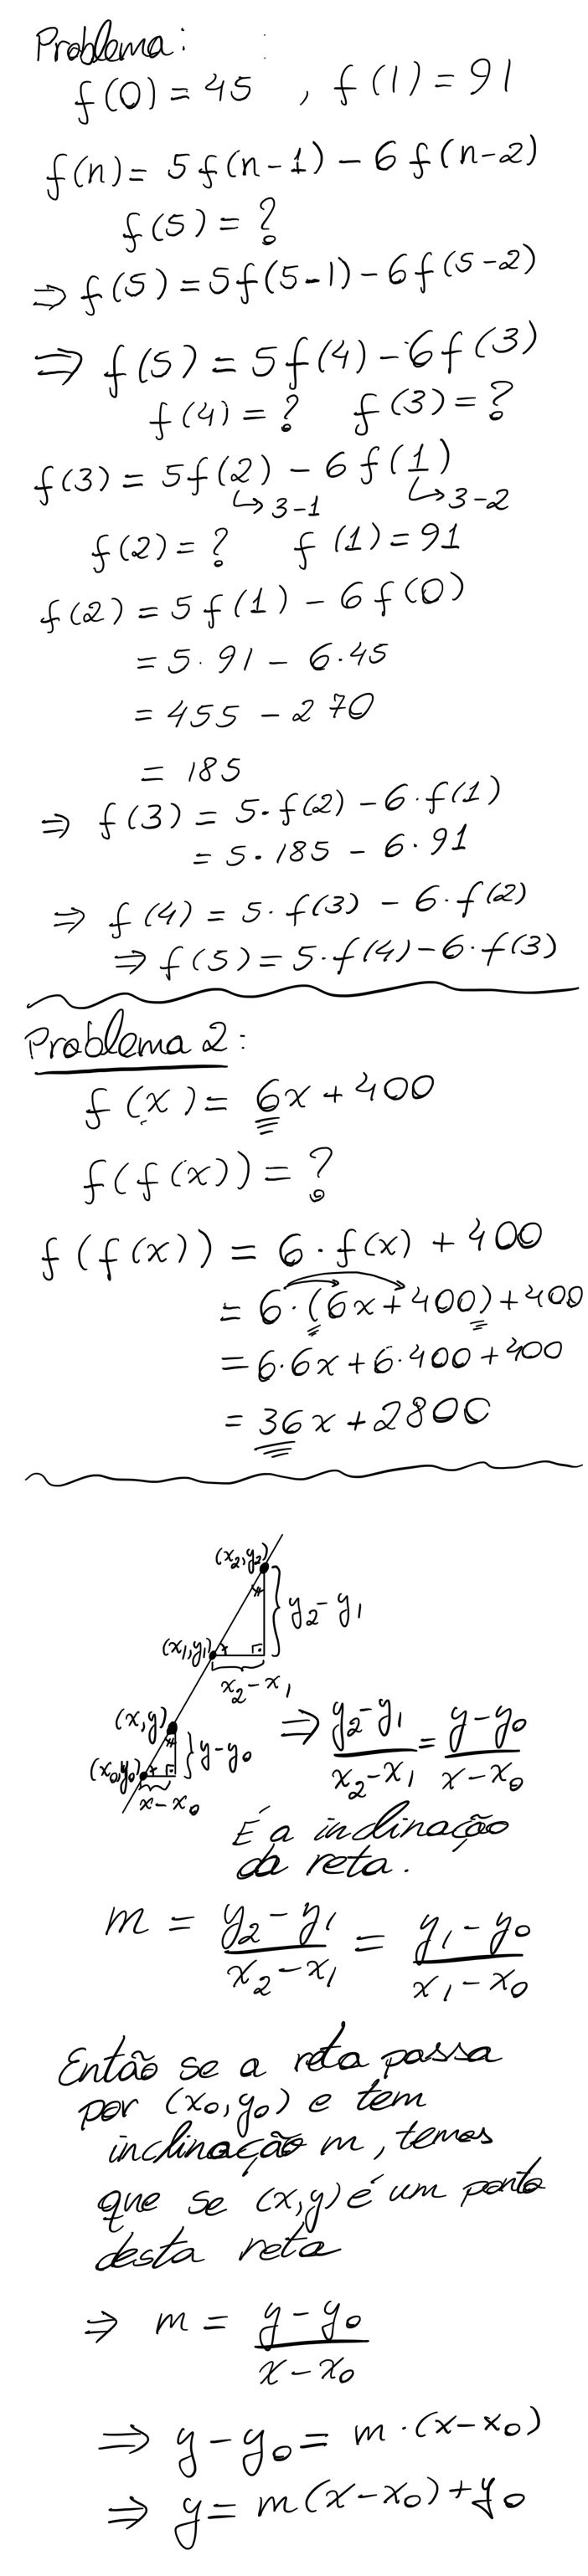 Problema:
f(0) = 45 , f(1) = 91
f(n) = 5f(n-1) - 6f(n-2)
f(5) = ?
⇒ f(5) = 5f(5-1) - 6f(5-2)
⇒ f(5) = 5f(4) - 6f(3)
f(4) = ? f(3) = ?
f(3) = 5f(2) - 6f(1)
↳ 3-1 ↳ 3-2
f(2) = ? f(1) = 91
f(2) = 5f(1) - 6f(0)
= 5·91 - 6·45
= 455 - 270
= 185
⇒ f(3) = 5·f(2) - 6·f(1)
= 5·185 - 6·91
⇒ f(4) = 5·f(3) - 6·f(2)
⇒ f(5) = 5·f(4) - 6·f(3)
Problema 2:
f(x) = 6x + 400
f(f(x)) = ?
f(f(x)) = 6·f(x) + 400
= 6·(6x + 400) + 400
= 6·6x + 6·400 + 400
= 36x + 2800
(x₂,y₂)
y₂-y₁
(x₁,y₁)
x₂-x₁
(x,y)
y-y₀
(x₀,y₀)
x-x₀
⇒ (y₂-y₁)/(x₂-x₁) = (y-y₀)/(x-x₀)
É a inclinação
da reta.
m = (y₂-y₁)/(x₂-x₁) = (y₁-y₀)/(x₁-x₀)
Então se a reta passa
por (x₀,y₀) e tem
inclinação m, temos
que se (x,y) é um ponto
desta reta
⇒ m = (y-y₀)/(x-x₀)
⇒ y-y₀ = m·(x-x₀)
⇒ y = m(x-x₀)+y₀